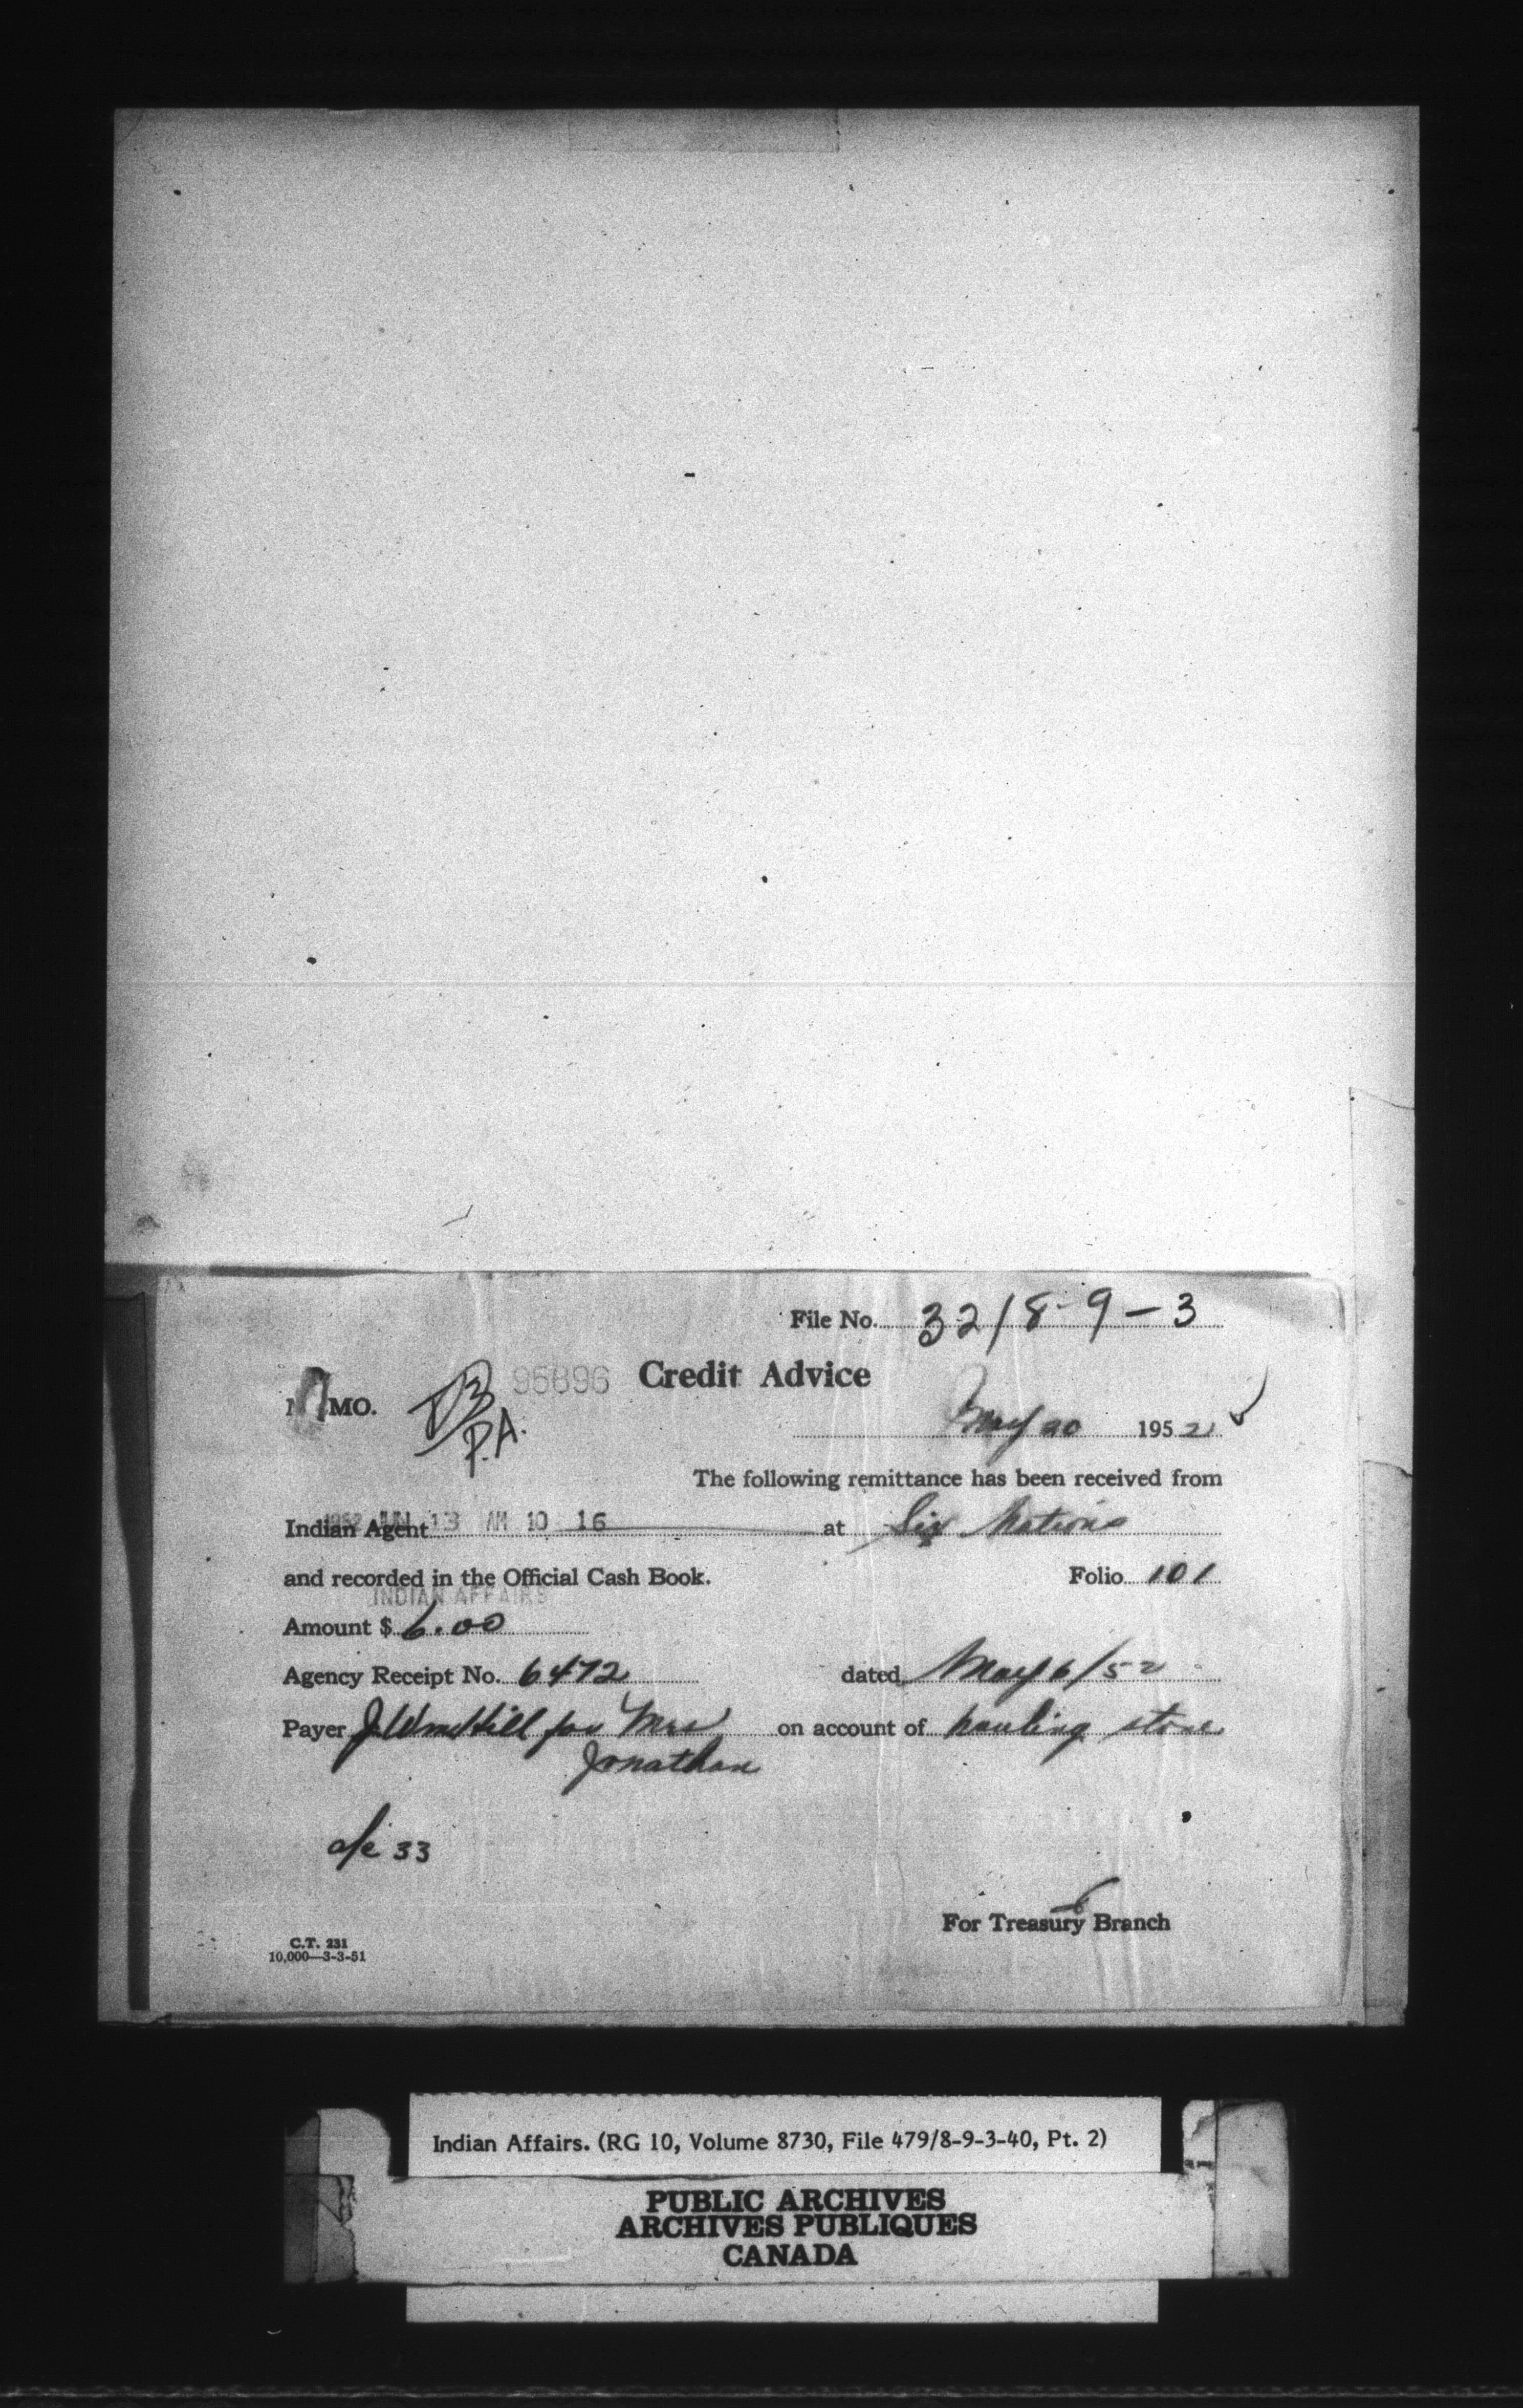 File No. 32/8-9-3
95696 Credit Advice
MEMO.
P.A.
May 20 1952
The following remittance has been received from
Indian Agent at Six Nations
1952 JUN 13 AM 10 16
and recorded in the Official Cash Book. Folio 101
INDIAN AFFAIRS
Amount $ 6.00
Agency Receipt No. 6472 dated May 6/52
Payer J. Wm Hill for Mrs on account of hauling stone
Jonathan
a/c 33
For Treasury Branch
C.T. 231
10,000—3-3-51
Indian Affairs. (RG 10, Volume 8730, File 479/8-9-3-40, Pt. 2)
PUBLIC ARCHIVES
ARCHIVES PUBLIQUES
CANADA